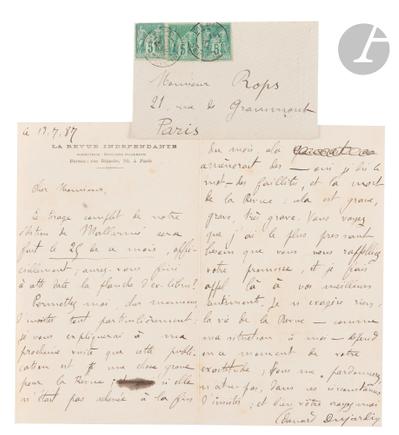 Monsieur Rops
21, rue de Grammont
Paris
Le 13.7.87
LA REVUE INDÉPENDANTE
Cher Monsieur,
Le tirage complet de notre
édition de Mallarmé sera
fait le 25 de ce mois, offi-
ciellement; aurez-vous fini
à cette date la planche d'ex-libris?
Permettez moi d'
insister tout particulièrement.
Je vous expliquerai à ma
prochaine visite que cette publi-
cation est une chose grave
pour la Revue; si elle
n'était pas achevée à la fin
du mois, cela
amènerait des — oui, je dis le
mot — des faillites, et la mort
de la Revue; cela est grave,
grave, très grave. Vous voyez
que j'ai le plus pressant
besoin que vous vous rappeliez
votre promesse, et je fais
appel là à vos meilleurs
sentiments. Je n'exagère rien;
la vie de la Revue — comme
ma situation à moi — dépend
en ce moment de votre
exactitude; vous me pardonnerez,
n'est-ce pas, dans ces circonstances
d'insister, et bien vôtre
Edouard Dujardin